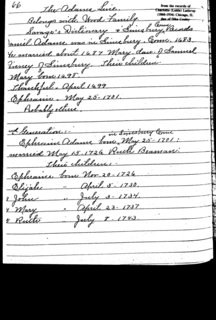 66
The Adams Line.
Belongs with Word Family
Savage's Dictionary & Simsbury Records
Daniel Adams was in Simsbury, Conn. 1683.
He married about 1677 Mary, dau. of Samuel
Pinney of Simsbury. Their children
Mary born 1695
Thankful, April 1699
Ephraim - May 25, 1701.
Probably others.
2d Generation:
in Simsbury Conn
Ephraim Adams born, May 25-1701;
married May 15-1726 Ruth Beaman
Their children:
Ephraim born Nov. 20-1726
Elijah " April 5-1730.
John " July 3-1734
Mary " April 23-1737
Ruth " July 8-1743